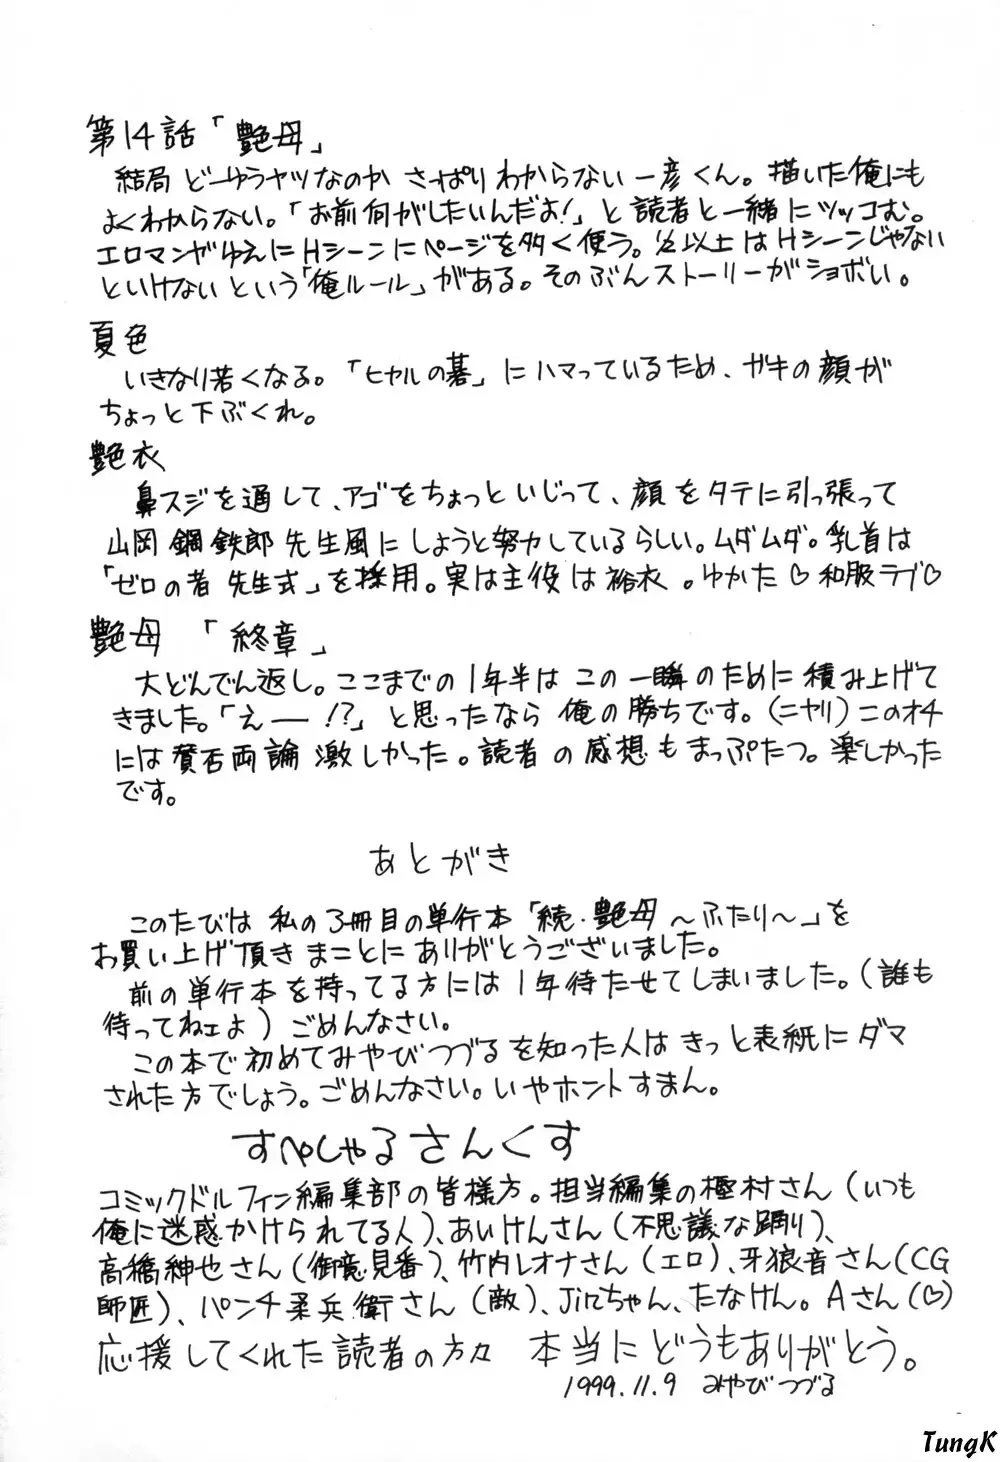 第14話「艶母」
結局どーゆうヤツなのかさっぱりわからない一彦くん。描いた俺にも
よくわからない。「お前何がしたいんだよ!」と読者と一緒にツッコむ。
エロマンガゆえにHシーンにページを多く使う。½以上はHシーンじゃない
といけないという「俺ルール」がある。そのぶんストーリーがショボい。
夏色
いきなり若くなる。「ヒカルの碁」にハマっているため、ガキの顔が
ちょっと下ぶくれ。
艶衣
鼻スジを通して、アゴをちょっといじって、顔をタテに引っ張って
山岡鋼鉄郎先生風にしようと努力しているらしい。ムダムダ。乳首は
「ゼロの者先生式」を採用。実は主役は裕衣。ゆかた♡和服ラブ♡
艶母 「終章」
大どんでん返し。ここまでの1年半はこの一瞬のために積み上げて
きました。「えー!?」と思ったなら俺の勝ちです。(ニヤリ)このオチ
には賛否両論激しかった。読者の感想もまっぷたつ。楽しかった
です。
あとがき
このたびは私の3冊目の単行本「続・艶母～ふたり～」を
お買い上げ頂きまことにありがとうございました。
前の単行本を持ってる方には1年待たせてしまいました。(誰も
待ってねェよ)ごめんなさい。
この本で初めてみやびつづるを知った人はきっと表紙にダマ
された方でしょう。ごめんなさい。いやホントすまん。
すぺしゃるさんくす
コミックドルフィン編集部の皆様方。担当編集の極村さん(いつも
俺に迷惑かけられてる人)、あいけんさん(不思議な踊り)、
高橋紳也さん(御意見番)、竹内レオナさん(エロ)、牙狼音さん(CG
師匠)、パンチ柔兵衛さん(敵)、Jinちゃん、たなけん。Aさん(♡)
応援してくれた読者の方々 本当にどうもありがとう。
1999.11.9 みやびつづる
TungK